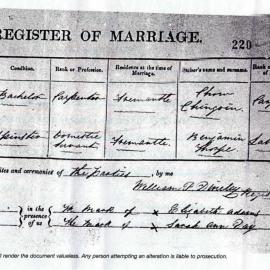 REGISTER OF MARRIAGE.
220
Condition. Rank or Profession. Residence at the time of Marriage. Father's name and surname. Rank
Bachelor Carpenter Fremantle Chow
Spinster Domestic Servant Fremantle Benjamin Thorpe Lab
ites and ceremonies of the Parties , by me
William P.
in the presence of us
The Mark of x Elizabeth Adams
The Mark of x Sarah Ann Day
l render the document valueless. Any person attempting an alteration is liable to prosecution.